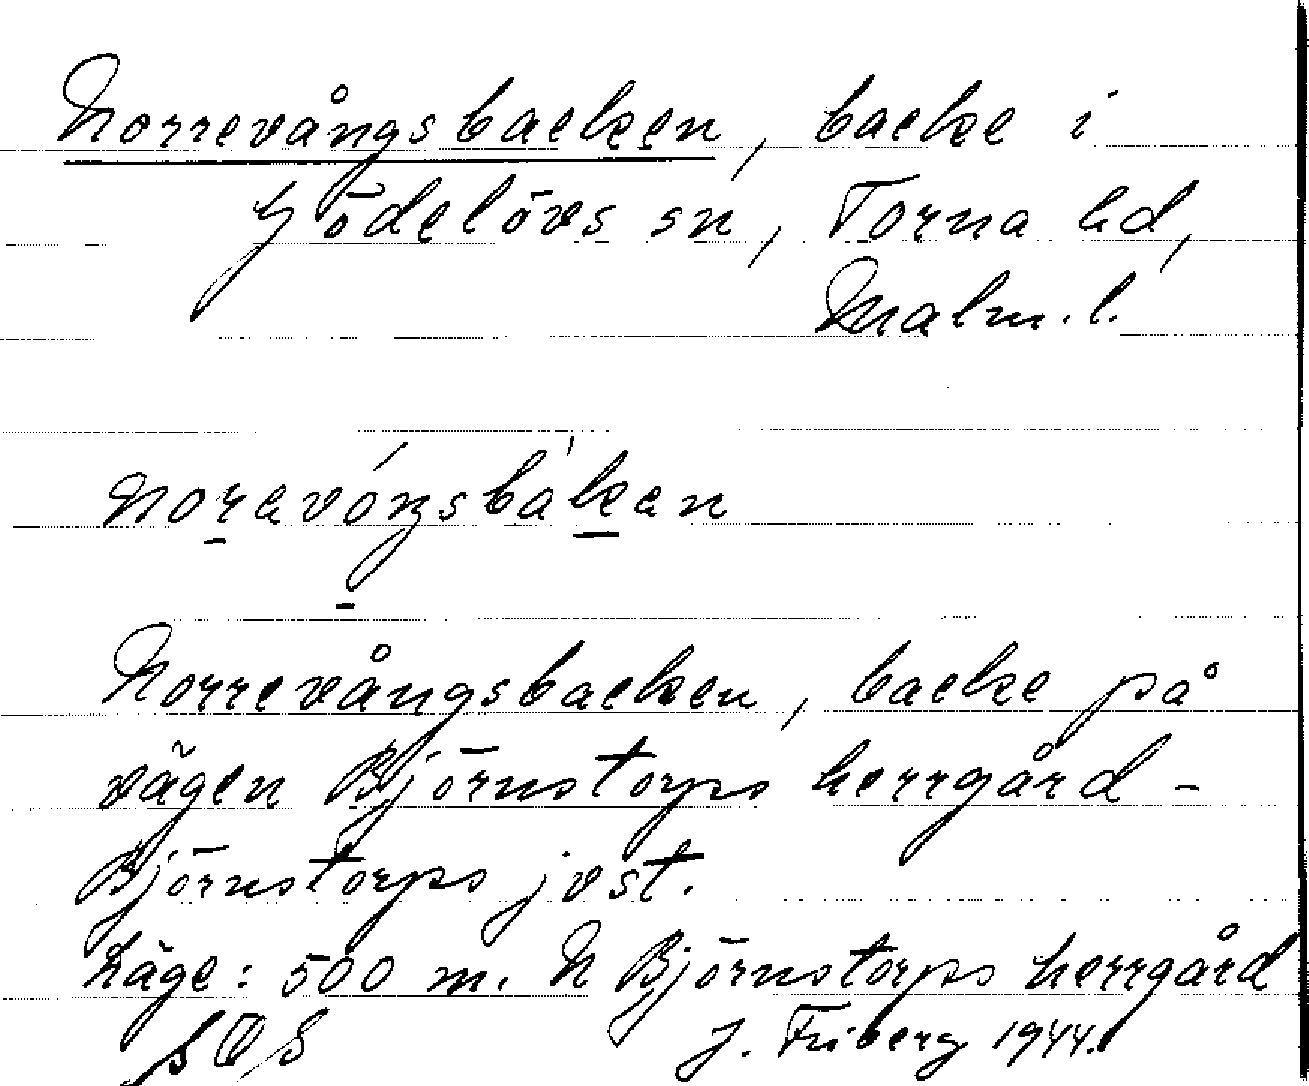 Norrevångsbacken, backe i
Gödelövs sn, Torna hd,
Malm. l.
Norrevångsbacken, backe på
vägen Björnstorps herrgård -
Björnstorps jvst.
Läge: 500 m. N Björnstorps herrgård
J. Friberg 1944.